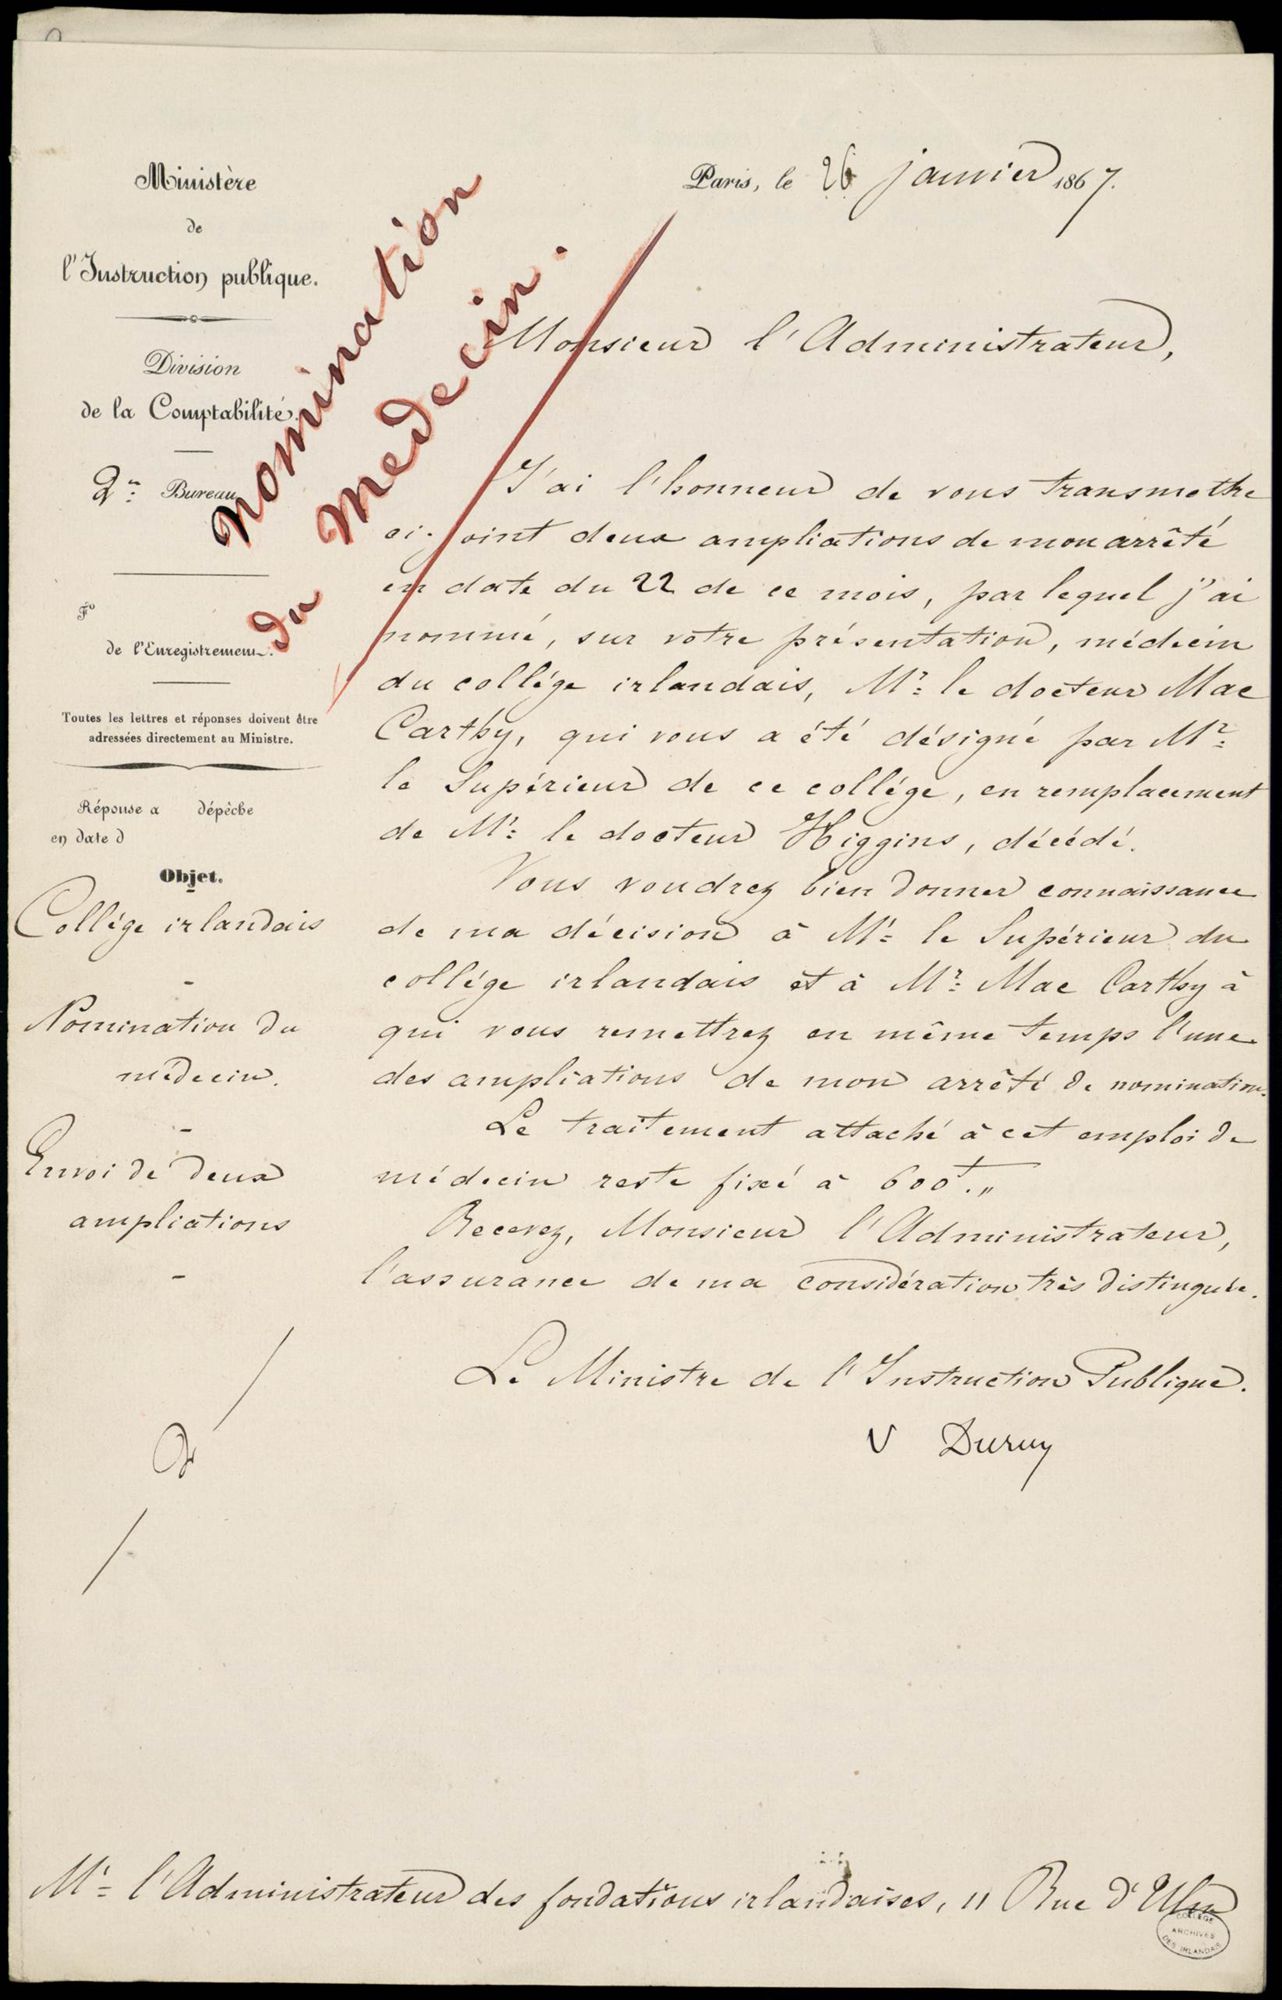 Ministère
de
l'Instruction publique.
Division
de la Comptabilité.
2me Bureau
Fo
de l'Enregistrement.
Toutes les lettres et réponses doivent être
adressées directement au Ministre.
Réponse a dépêche
en date d
Objet.
Collége irlandais
Nomination du
médecin.
Envoi de deux
ampliations
nomination
du medecin.
Paris, le 26 janvier 1867.
Monsieur l'Administrateur,
J'ai l'honneur de vous transmettre
ci-joint deux ampliations de mon arrêté
en date du 22 de ce mois, par lequel j'ai
nommé, sur votre présentation, médecin
du collége irlandais, Mr le docteur Mac
Carthy, qui vous a été désigné par Mr
le Supérieur de ce collége, en remplacement
de Mr le docteur Higgins, décédé.
Vous voudrez bien donner connaissance
de ma décision à Mr le Supérieur du
collége irlandais et à Mr Mac Carthy à
qui vous remettrez en même temps l'une
des ampliations de mon arrêté de nomination.
Le traitement attaché à cet emploi de
médecin reste fixé à 600f.„
Recevez, Monsieur l'Administrateur,
l'assurance de ma considération très distinguée.
Le Ministre de l'Instruction Publique.
V Duruy
Mr l'Administrateur des fondations irlandaises, 11 Rue d'Ulm
COLLÈGE
ARCHIVES
DES IRLANDAIS